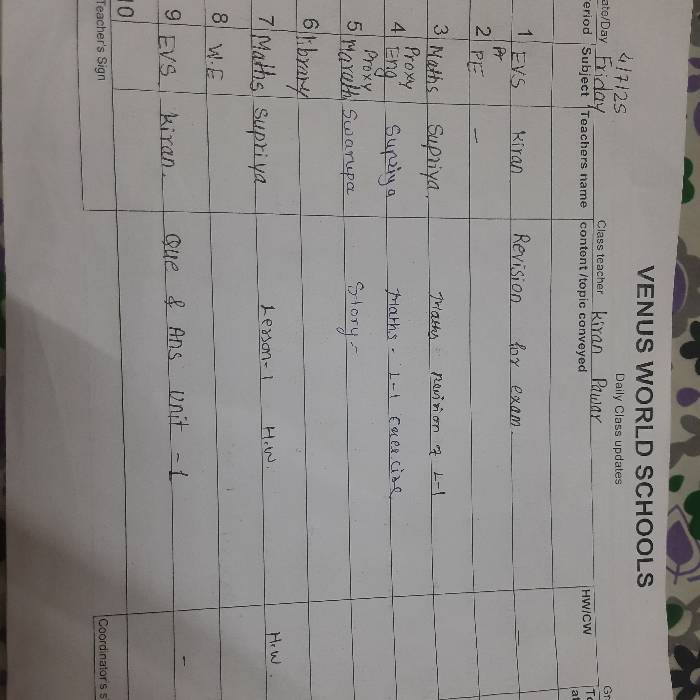 VENUS WORLD SCHOOLS
Daily Class updates
ate/Day 4/7/25 Friday Class teacher Kiran Pawar Gr
eriod Subject Teachers name content /topic conveyed HW/CW
1 EVS Kiran Revision for exam. -
2 PE -
3 Maths Supriya. Maths revision L-1
4 Proxy Eng Supriya Maths - L-1 Exercise
5 Proxy Marathi Swarupa Story -
6 library
7 Maths Supriya Lesson-1 H.W. H.W.
8 W.E
9 EVS Kiran. Que & Ans Unit - 1 -
10
Teacher's Sign Coordinator's s